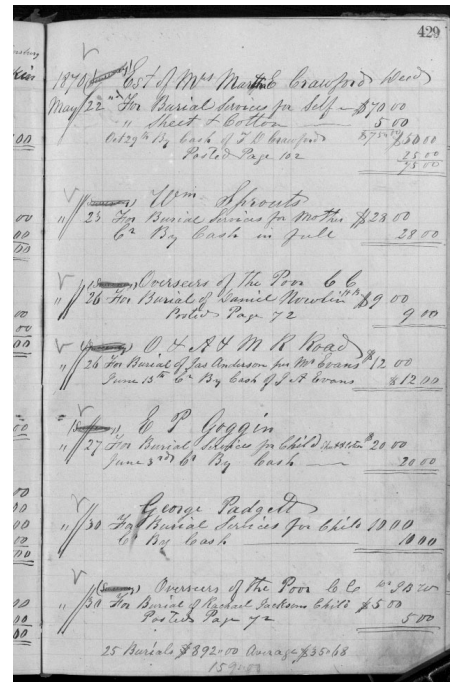 429
1870 Est of Mrs Martha E Crawford Decd
May 22nd For Burial Services for Self $70 00
" Sheet & Cotton 5 00
Oct 29th By Cash of T D Crawford $50 00
Posted Page 102 25 00
75 00
Wm Sprouts
" 23 For Burial Services for Mother $28 00
Cr By Cash in full 28 00
Overseers of The Poor C C
" 26 For Burial of Daniel Nowlin $9 00
Posted Page 72 9 00
O & A & M R Road
" 26 For Burial of Jas Anderson for Mr Evans $12 00
June 13th Cr By Cash of J A Evans $12 00
E P Goggin
" 27 For Burial Services for Child $20 00
June 3rd Cr By Cash 20 00
George Padgett
" 30 For Burial Services for Child 10 00
Cr By Cash 10 00
Overseers of the Poor C C
" 30 For Burial of Rachael Jacksons Child $5 00
Posted Page 72 5 00
25 Burials $892.00 Average $35.68